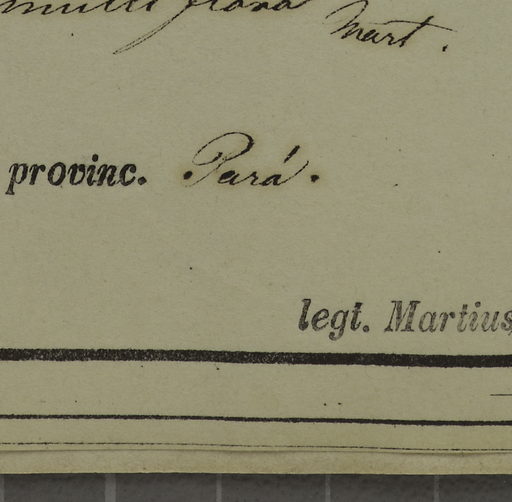 multiflora Mart.
provinc. Pará.
legt. Martius